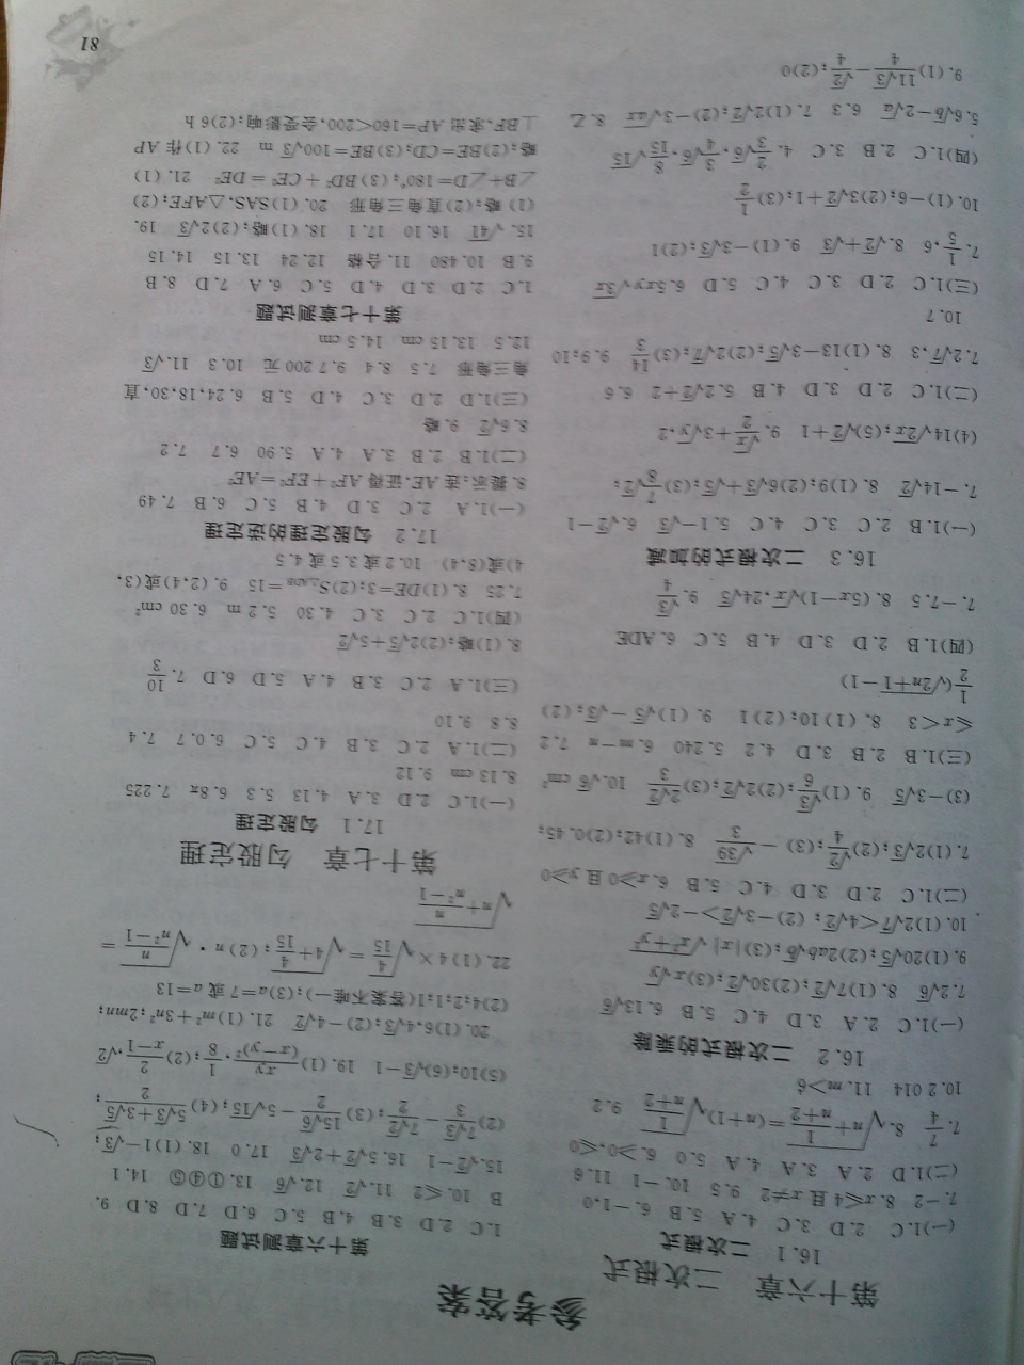 参考答案
第十六章 二次根式
16.1 二次根式
(一)1.C 2.D 3.C 4.A 5.B 6.-1,0
7.-2 8.x≤4且x≠2 9.5 10.-1 11.6
(二)1.D 2.A 3.A 4.A 5.0 6.≥0,≤0
7.7/4 8.√(n+1/(n+2))=(n+1)√(1/(n+2)) 9.2
10.2 014 11.m>6
16.2 二次根式的乘除
(一)1.C 2.A 3.D 4.C 5.B 6.13√6
7.2√6 8.(1)7√2;(2)30√2;(3)x√y
9.(1)20√5;(2)2ab√b;(3)|x|√(x²+y²)
10.(1)2√7<4√2; (2)-3√2>-2√5
(二)1.C 2.D 3.D 4.C 5.B 6.x≥0且y≥0
7.(1)2√3;(2)√2/4;(3)-√39/3 8.(1)42;(2)0.45;
(3)-3√5 9.(1)√3/6;(2)2√2;(3)2√2/3 10.√6 cm²
(三)1.B 2.B 3.D 4.2 5.240 6.m-n 7.2
≤x<3 8.(1)10;(2)1 9.(1)√5-√3;(2)
1/2(√(2n+1)-1)
(四)1.B 2.D 3.D 4.B 5.C 6.ADE
7.-7.5 8.(5x-1)√x,24√5 9.√3/4
16.3 二次根式的加减
(一)1.B 2.C 3.C 4.C 5.1-√3 6.√2-1
7.-14√2 8.(1)9;(2)6√3+√5;(3)7/8√2;
(4)14√2x;(5)√2+1 9.√x/2+3√y,2
(二)1.C 2.D 3.D 4.B 5.2√2+2 6.6
7.2√7,3 8.(1)13-3√5;(2)2√7;(3)14/3 9.9;10
10.7
(三)1.C 2.D 3.C 4.C 5.D 6.5xy√3x
7.1/5,6 8.√2+√3 9.(1)-3√3;(2)1
10.(1)-6;(2)3√2+1;(3)1/2
(四)1.C 2.B 3.C 4.2/3√6,3/4√6,8/15√15
5.6√6-2√a 6.3 7.(1)2√2;(2)-3√ax 8.乙
9.(1)11√3/4-√2/4;(2)0
第十六章测试题
1.C 2.D 3.B 4.B 5.C 6.D 7.D 8.D 9.
B 10.≤2 11.√2 12.√6 13.①④⑤ 14.1
15.√2-1 16.5√2+2√3 17.0 18.(1)1-√3;
(2)7√3/3-7√2/2;(3)15√6/2-5√15;(4)5√3+3√5/2;
(5)10;(6)√3-1 19.(1)xy/(x-y)²,1/8;(2)2/(x-1),√2
20.(1)6,4√3;(2)-4√2 21.(1)m²+3n²;2mn;
(2)4;2;1;1(答案不唯一);(3)a=7或a=13
22.(1)4×√(4/15)=√(4+4/15);(2)n·√(n/(n²-1))=
√(n+n/(n²-1))
第十七章 勾股定理
17.1 勾股定理
(一)1.C 2.D 3.A 4.13 5.3 6.8π 7.225
8.13 cm 9.12
(二)1.A 2.C 3.B 4.C 5.C 6.0.7 7.4
8.8 9.10
(三)1.A 2.C 3.B 4.A 5.D 6.D 7.10/3
8.(1)略;(2)2√5+5√2
(四)1.C 2.C 3.C 4.30 5.2 m 6.30 cm²
7.25 8.(1)DE=3;(2)S△ADB=15 9.(2,4)或(3,
4)或(8,4) 10.2或3.5或4.5
17.2 勾股定理的逆定理
(一)1.A 2.C 3.D 4.B 5.C 6.B 7.49
8.提示:连AE,证得AF²+EF²=AE²
(二)1.B 2.B 3.A 4.A 5.90 6.7 7.2
8.6√2 9.略
(三)1.D 2.D 3.C 4.D 5.B 6.24,18,30,直
角三角形 7.5 8.4 9.7 200元 10.3 11.√3
12.5 13.15 cm 14.5 cm
第十七章测试题
1.C 2.D 3.D 4.D 5.C 6.A 7.D 8.B
9.B 10.480 11.合格 12.24 13.15 14.15
15.√41 16.10 17.1 18.(1)略;(2)2√3 19.
(1)略;(2)直角三角形 20.(1)SAS,△AFE;(2)
∠B+∠D=180°;(3)BD²+CE²=DE² 21.(1)
略;(2)BE=CD;(3)BE=100√3 m 22.(1)作AP
⊥BF,求出AP=160<200,会受影响;(2)6 h
81